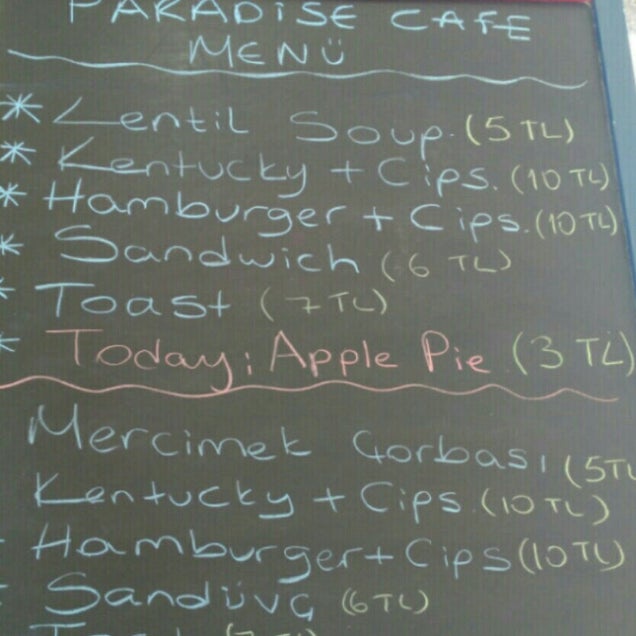 PARADISE CAFE
MENÜ
* Lentil Soup. (5 TL)
* Kentucky + Cips. (10 TL)
* Hamburger + Cips. (10 TL)
* Sandwich (6 TL)
* Toast (7 TL)
* Today; Apple Pie (3 TL)
Mercimek Çorbası (5TL
Kentucky + Cips (10 TL)
- Hamburger + Cips (10 TL)
- Sandüvç (6 TL)